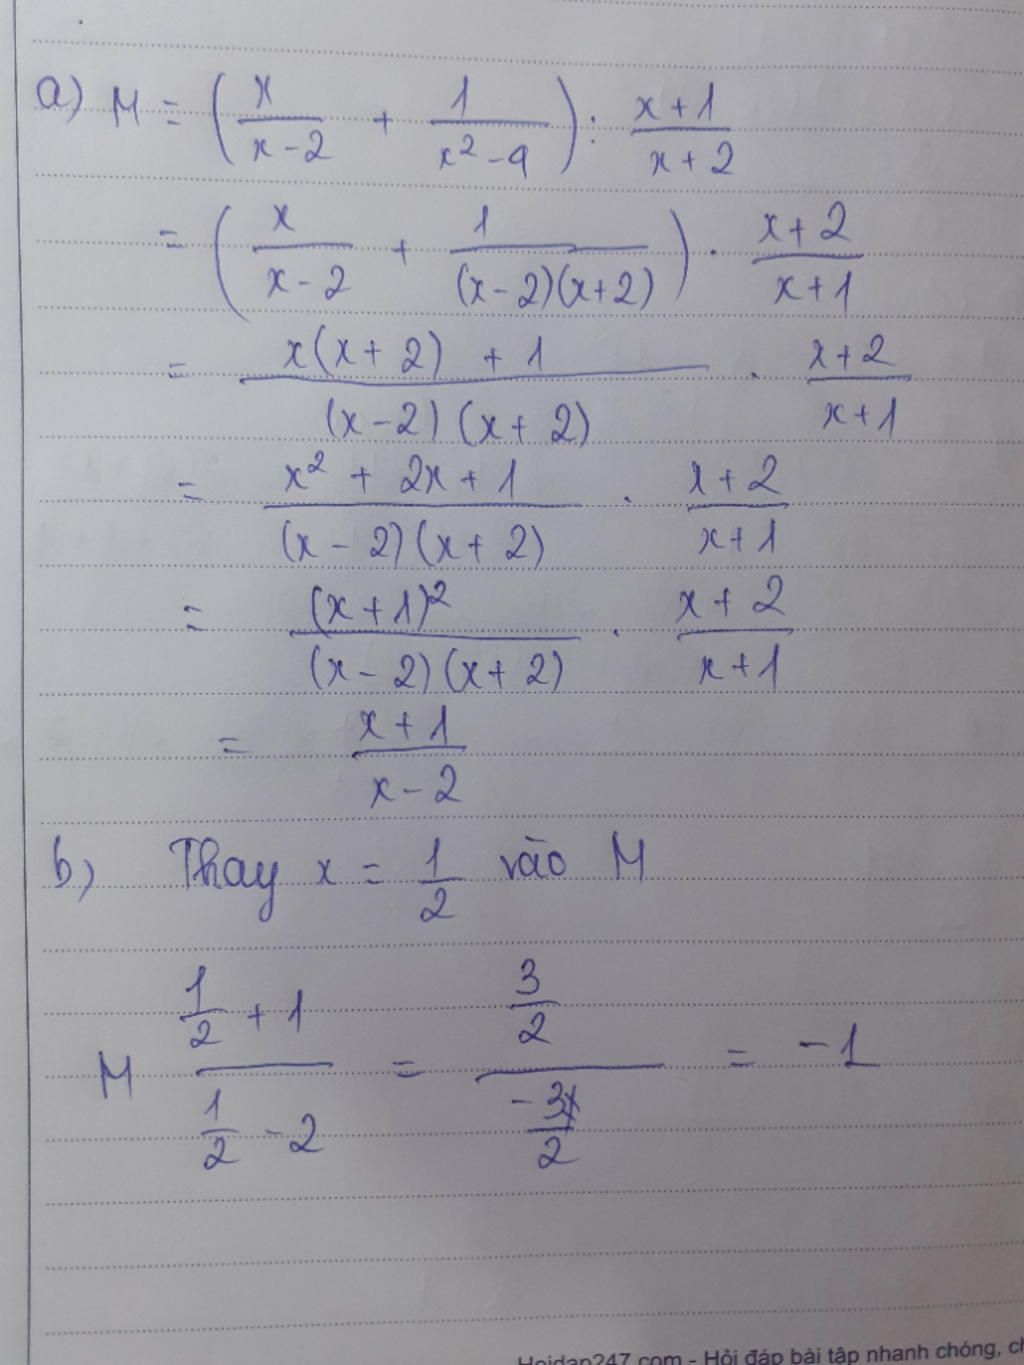 a) M = ( x/(x-2) + 1/(x²-9) ) : (x+1)/(x+2)
= ( x/(x-2) + 1/((x-2)(x+2)) ) . (x+2)/(x+1)
= (x(x+2) + 1)/((x-2)(x+2)) . (x+2)/(x+1)
= (x² + 2x + 1)/((x-2)(x+2)) . (x+2)/(x+1)
= (x+1)²/((x-2)(x+2)) . (x+2)/(x+1)
= (x+1)/(x-2)
b) Thay x = 1/2 vào M
M (1/2 + 1)/(1/2 - 2) = (3/2)/(-3/2) = -1
Hoidap247.com - Hỏi đáp bài tập nhanh chóng, ch